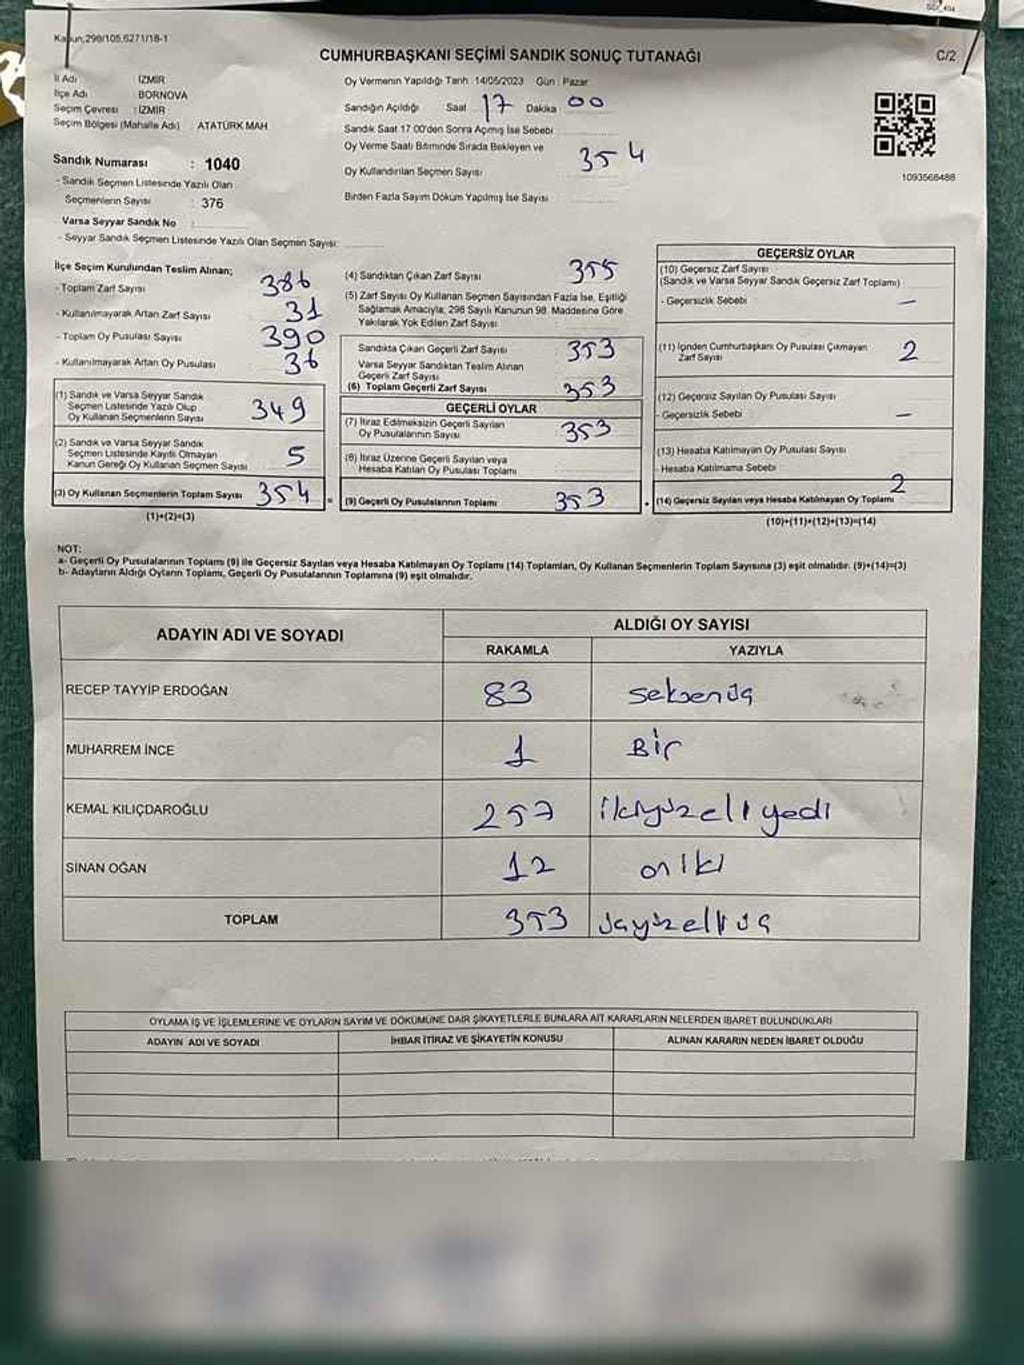 Kanun:298/105,6271/18-1
CUMHURBAŞKANI SEÇİMİ SANDIK SONUÇ TUTANAĞI
C/2
İl Adı : İZMİR
İlçe Adı : BORNOVA
Seçim Çevresi : İZMİR
Seçim Bölgesi (Mahalle Adı) : ATATÜRK MAH
Sandık Numarası : 1040
- Sandık Seçmen Listesinde Yazılı Olan
Seçmenlerin Sayısı : 376
Varsa Seyyar Sandık No :
- Seyyar Sandık Seçmen Listesinde Yazılı Olan Seçmen Sayısı:
Oy Vermenin Yapıldığı Tarih :14/05/2023 Gün : Pazar
Sandığın Açıldığı Saat 17 Dakika 00
Sandık Saat 17:00'den Sonra Açılmış İse Sebebi
Oy Verme Saati Bitiminde Sırada Bekleyen ve
Oy Kullandırılan Seçmen Sayısı 354
Birden Fazla Sayım Döküm Yapılmış İse Sayısı
1093568488
İlçe Seçim Kurulundan Teslim Alınan;
- Toplam Zarf Sayısı 386
- Kullanılmayarak Artan Zarf Sayısı 31
- Toplam Oy Pusulası Sayısı 390
- Kullanılmayarak Artan Oy Pusulası 36
(1) Sandık ve Varsa Seyyar Sandık
Seçmen Listesinde Yazılı Olup
Oy Kullanan Seçmenlerin Sayısı 349
(2) Sandık ve Varsa Seyyar Sandık
Seçmen Listesinde Kayıtlı Olmayan
Kanun Gereği Oy Kullanan Seçmen Sayısı 5
(3) Oy Kullanan Seçmenlerin Toplam Sayısı 354 =
(1)+(2)=(3)
(4) Sandıktan Çıkan Zarf Sayısı 355
(5) Zarf Sayısı Oy Kullanan Seçmen Sayısından Fazla İse, Eşitliği
Sağlamak Amacıyla; 298 Sayılı Kanunun 98. Maddesine Göre
Yakılarak Yok Edilen Zarf Sayısı :
Sandıkta Çıkan Geçerli Zarf Sayısı 353
Varsa Seyyar Sandıktan Teslim Alınan
Geçerli Zarf Sayısı
(6) Toplam Geçerli Zarf Sayısı 353
GEÇERLİ OYLAR
(7) İtiraz Edilmeksizin Geçerli Sayılan
Oy Pusulalarının Sayısı 353
(8) İtiraz Üzerine Geçerli Sayılan veya
Hesaba Katılan Oy Pusulası Toplamı
(9) Geçerli Oy Pusulalarının Toplamı 353 +
GEÇERSİZ OYLAR
(10) Geçersiz Zarf Sayısı
(Sandık ve Varsa Seyyar Sandık Geçersiz Zarf Toplamı)
- Geçersizlik Sebebi —
(11) İçinden Cumhurbaşkanı Oy Pusulası Çıkmayan
Zarf Sayısı 2
(12) Geçersiz Sayılan Oy Pusulası Sayısı
- Geçersizlik Sebebi —
(13) Hesaba Katılmayan Oy Pusulası Sayısı
- Hesaba Katılmama Sebebi
(14) Geçersiz Sayılan veya Hesaba Katılmayan Oy Toplamı 2
(10)+(11)+(12)+(13)=(14)
NOT:
a- Geçerli Oy Pusulalarının Toplamı (9) ile Geçersiz Sayılan veya Hesaba Katılmayan Oy Toplamı (14) Toplamları, Oy Kullanan Seçmenlerin Toplam Sayısına (3) eşit olmalıdır. (9)+(14)=(3)
b- Adayların Aldığı Oyların Toplamı, Geçerli Oy Pusulalarının Toplamına (9) eşit olmalıdır.
ADAYIN ADI VE SOYADI
ALDIĞI OY SAYISI
RAKAMLA YAZIYLA
RECEP TAYYİP ERDOĞAN 83 seksenüç
MUHARREM İNCE 1 Bir
KEMAL KILIÇDAROĞLU 257 ikiyüzelliyedi
SİNAN OĞAN 12 oniki
TOPLAM 353 üçyüzelliüç
OYLAMA İŞ VE İŞLEMLERİNE VE OYLARIN SAYIM VE DÖKÜMÜNE DAİR ŞİKAYETLERLE BUNLARA AİT KARARLARIN NELERDEN İBARET BULUNDUKLARI
ADAYIN ADI VE SOYADI İHBAR İTİRAZ VE ŞİKAYETİN KONUSU ALINAN KARARIN NEDEN İBARET OLDUĞU